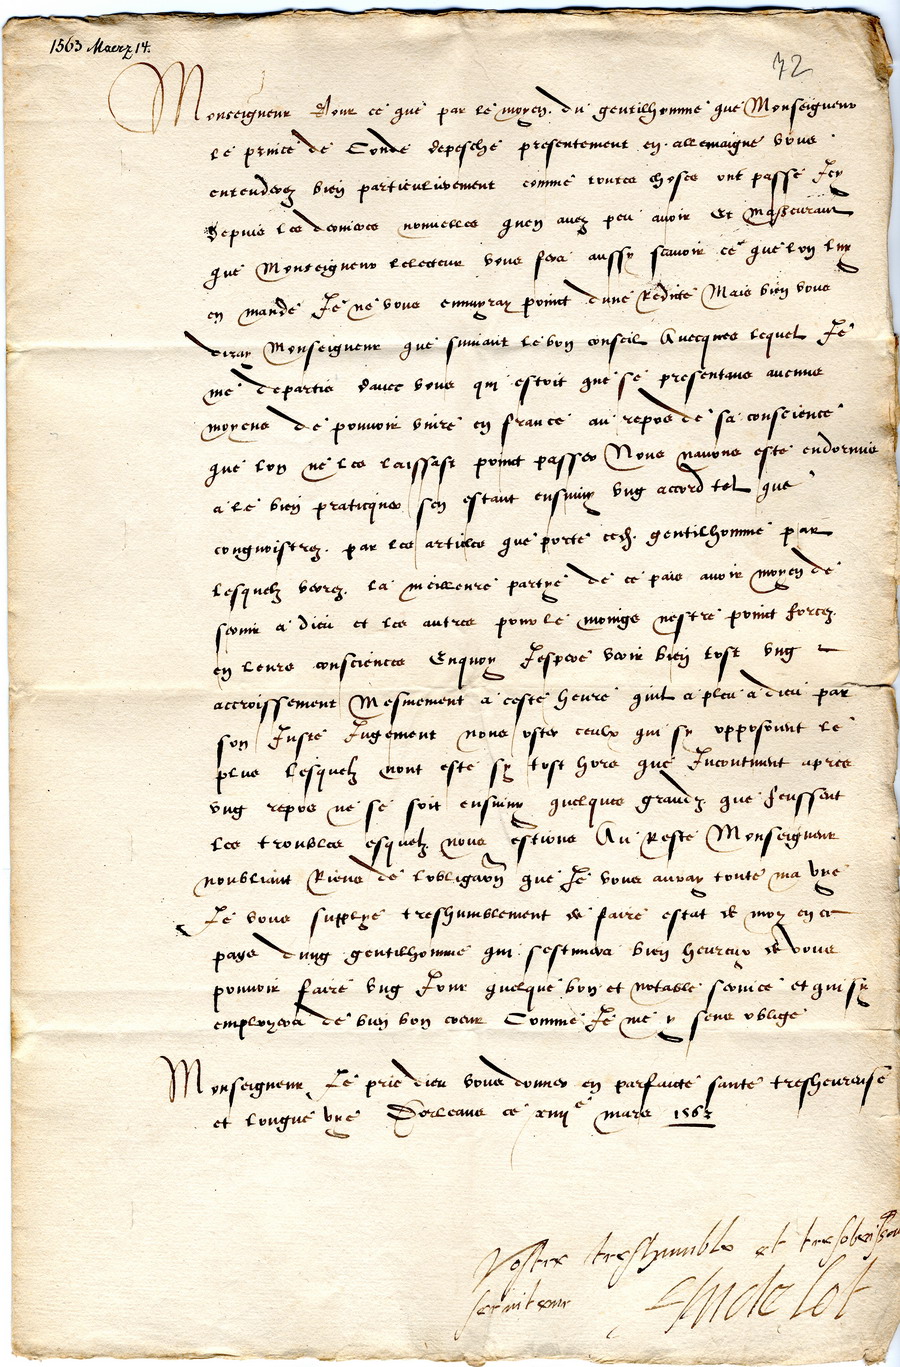 1563 Maerz 14.
72
Monseigneur Pour ce que par le moyen du gentilhomme que Monseigneur
le prince de Conde depesche presentement en allemaigne vous
entenderez bien particulierement comme toutes choses ont passé Icy
depuis les dernieres nouvelles quen avez peu avoir Et Masseurant
que Monseigneur lelecteur vous fera aussy scavoir ce que lon luy
en mande Je ne vous ennuyray point dune Redite Mais bien vous
diray Monseigneur que suivant le bon conseil Avecques lequel Je
me departis davec vous qui estoit que se presentans aucuns
moyens de pouvoir vivre en france au repos de sa conscience
que lon ne les laissast point passer Nous navons esté endormis
a le bien praticquer sen estant ensuivy ung accord tel que
congnoistrez par les articles que porte ced. gentilhomme par
lesquelz verrez la meilleure partye de ce pais avoir moyen de
servir a dieu et les autres pour le moings nestre point forcez
en leurs consciences Enquoy Jespere veoir bien tost ung
accroissement Mesmement a ceste heure quil a pleu a dieu par
son Juste Jugement nous oster ceulx qui sy opposoient le
plus lesquelz nont esté sy tost hors que Incontinent apres
ung repos ne se soit ensuivy quelques grandz que feussent
les troubles esquelz nous estions Au Reste Monseigneur
noubliant Riens de lobligaon que Je vous auray toute ma vye
Je vous supplye treshumblement de faire estat de moy en ce
pays dung gentilhomme qui sestimera bien heureux de vous
pouvoir faire ung Jour quelque bon et notable service et qui sy
employera de bien bon coeur Comme Je me y sens obligé
Monseigneur Je prie dieu vous donner en parfaicte santé tresheureuse
et longue vye Dorleans ce xiiii e mars 1563
Vostre treshumble et tresobeissant
serviteur Andelot